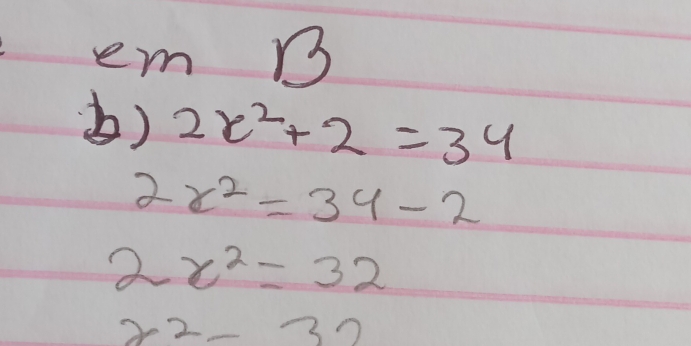 em B
b) 2x²+2 = 34
2x² = 34 - 2
2x² = 32
x² = 32